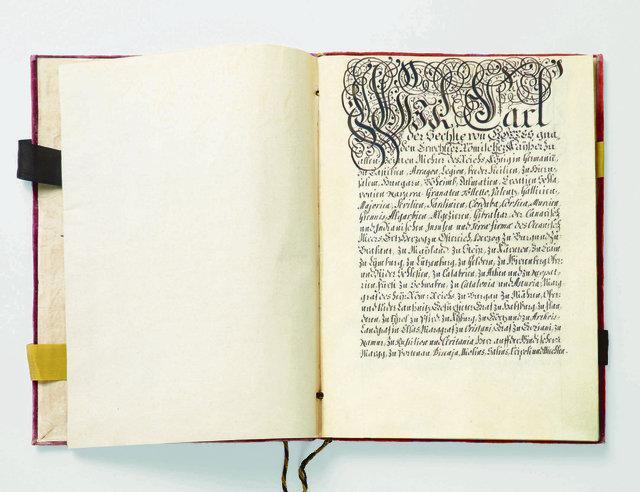 Wir Carl
der Sechste von GOTTES gna,
den Erwehlter Römischer Kaÿser zu
allen Zeiten Mehrer des Reichs, König in Germanien,
zu Castilien, Arragon, Legion, beeder Sicilien, zu Hieru,
salem, Hungarn, Böheimb, Dalmatien, Croatien, Scla,
vonien, Navarra, Granaten, Tolleto, Valentz, Gallicien,
Majorica, Sevilien, Sardinien, Corduba, Corsica, Murcien,
Giennis, Algarbien, Algezieren, Gibraltar, der Canarisch
und Indianischen Insulen und Terræ firmæ des Oceanisch
Meers, Ertzherzog zu Österreich, Herzog zu Burgund, zu
Brabant, zu Maÿland, zu Steÿr, zu Kärnten, zu Crain,
zu Lÿmburg, zu Lützenburg, zu Geldern, zu Würtenberg, Ober,
und Nider Schlesien, zu Calabrien, zu Athen und zu Neopat,
rien, Fürst zu Schwaben, zu Catalonia und Asturia, Marg,
graf des heÿl: Röm: Reichs, zu Burgau, zu Mähren, Ober,
und Nider Laußnitz, Gefürsteter Graf zu Habsburg, zu Flan,
dern, zu Tÿrol, zu Pfierd, zu Kÿburg, zu Görtz und zu Arthois,
Landgraf in Elsas, Marggraf zu Oristani, Graf zu Goziani, zu
Namur, zu Rusilion und Ceritania, Herr auf der Windischen
Margg, zu Portenau, Biscaja, Molins, Salins, Tripoli und Mecheln.